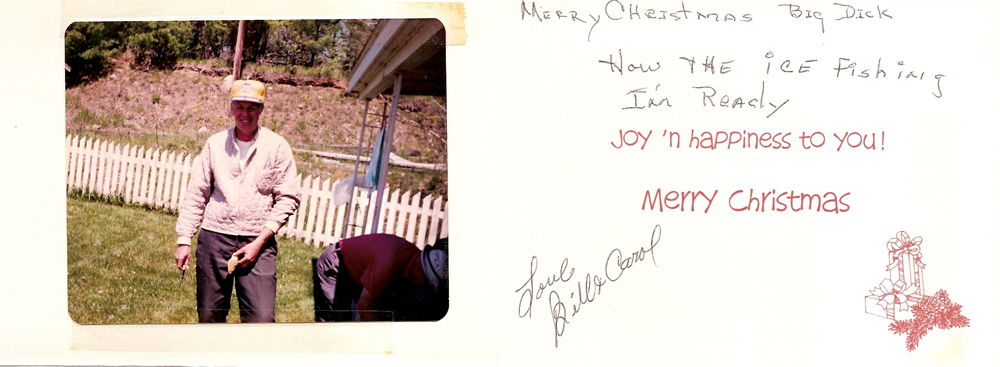 Merry Christmas Big Dick
How THE iCE Fishing
I'm Ready
Joy 'n happiness to you!
Merry Christmas
Love
Bill & Carol